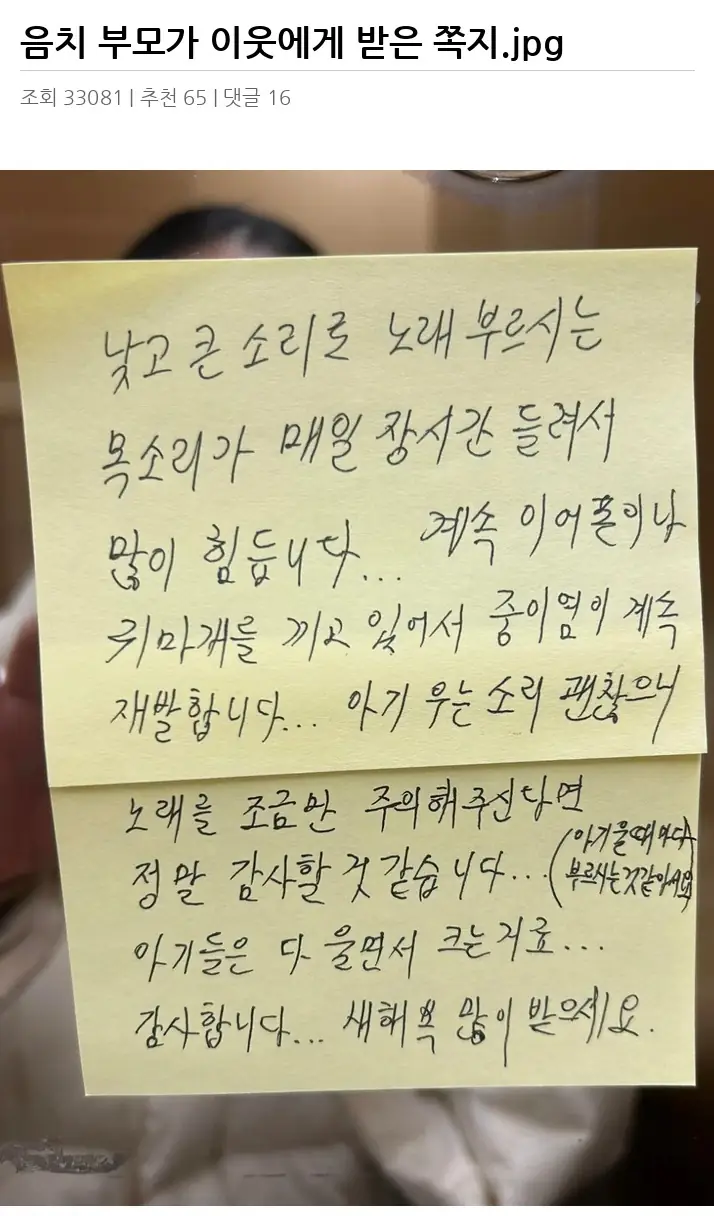 음치 부모가 이웃에게 받은 쪽지.jpg
조회 33081 | 추천 65 | 댓글 16
낮고 큰 소리로 노래 부르시는
목소리가 매일 장시간 들려서
많이 힘듭니다... 계속 이어폰이나
귀마개를 끼고 있어서 중이염이 계속
재발합니다... 아기 우는 소리 괜찮으니
노래를 조금만 주의해주신다면
정말 감사할 것 같습니다... (아기 울때마다
부르시는것같아서요)
아기들은 다 울면서 크는거죠...
감사합니다... 새해 복 많이 받으세요.